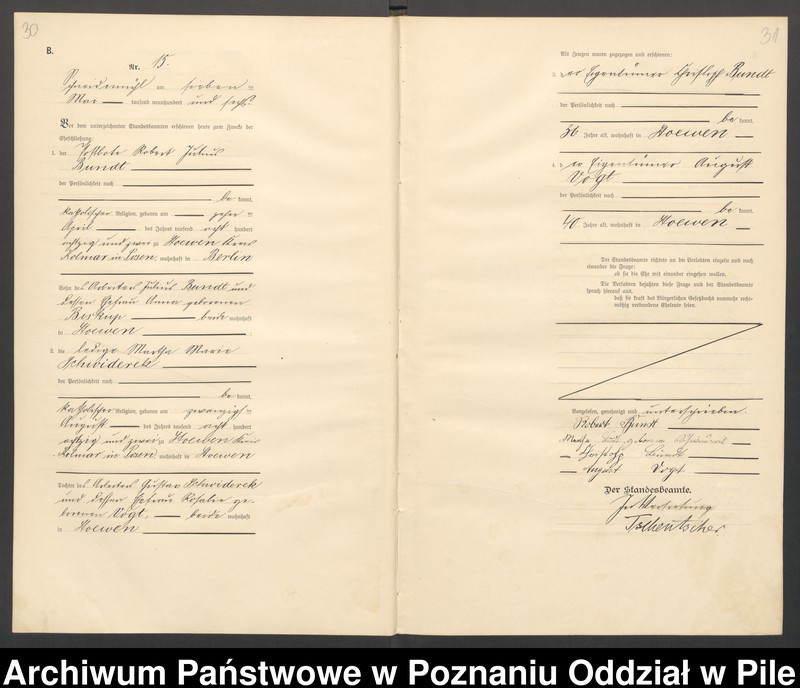 30
B.
Nr. 15.
Schneidemühl am sieben-
Mai tausend neunhundert und sechs.
Vor dem unterzeichneten Standesbeamten erschienen heute zum Zwecke der
Eheschließung:
1. der Postbote Robert Julius
Bundt
der Persönlichkeit nach
be kannt,
katholischer Religion, geboren am zehn-
April des Jahres tausend acht hundert
achtzig und zwei zu Hoewen Kreis
Kolmar in Posen, wohnhaft in Berlin
Sohn des Arbeiters Julius Bundt und
dessen Ehefrau Anna geborenen
Biskup beide wohnhaft
in Hoewen
2. die ledige Martha Marie
Schwiderek
der Persönlichkeit nach
be kannt,
katholischer Religion, geboren am zwanzigst-
August des Jahres tausend acht hundert
achtzig und zwei zu Hoewen Kreis
Kolmar in Posen, wohnhaft in Hoewen
Tochter des Arbeiters Gustav Schwiderek
und dessen Ehefrau Rosalie ge-
borenen Vogt, beide wohnhaft
in Hoewen
31
Als Zeugen waren zugezogen und erschienen:
3. der Eigentümer Christoph Bundt
der Persönlichkeit nach
be kannt,
36 Jahre alt, wohnhaft in Hoewen
4. der Eigentümer August
Vogt
der Persönlichkeit nach
be kannt,
40 Jahre alt, wohnhaft in Hoewen
Der Standesbeamte richtete an die Verlobten einzeln und nach
einander die Frage:
ob sie die Ehe mit einander eingehen wollen.
Die Verlobten bejahten diese Frage und der Standesbeamte
sprach hierauf aus,
daß sie kraft des Bürgerlichen Gesetzbuchs nunmehr recht-
mäßig verbundene Eheleute seien.
Vorgelesen, genehmigt und unterschrieben.
Robert Bundt
Martha Bundt geborene Schwiderek
Christoph Bundt
August Vogt
Der Standesbeamte.
In Vertretung
Tscheutscher
Archiwum Państwowe w Poznaniu Oddział w Pile